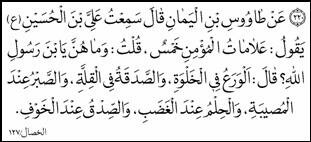 (٢٢) عَنْ طَاوُوسِ بْنِ الْيَمَانِ قَالَ سَمِعْتُ عَلِيَّ بْنَ الْحُسَيْنِ (ع)
يَقُولُ: عَلَامَاتُ الْمُؤْمِنِ خَمْسٌ، قُلْتُ: وَمَا هُنَّ يَابْنَ رَسُولِ
اللهِ؟ قَالَ: اَلْوَرَعُ فِي الْخَلْوَةِ، وَالصَّدَقَةُ فِي الْقِلَّةِ، وَالصَّبْرُ عِنْدَ
الْمُصِيبَةِ، وَالْحِلْمُ عِنْدَ الْغَضَبِ، وَالصِّدْقُ عِنْدَ الْخَوْفِ.
الخصال/١٢٧